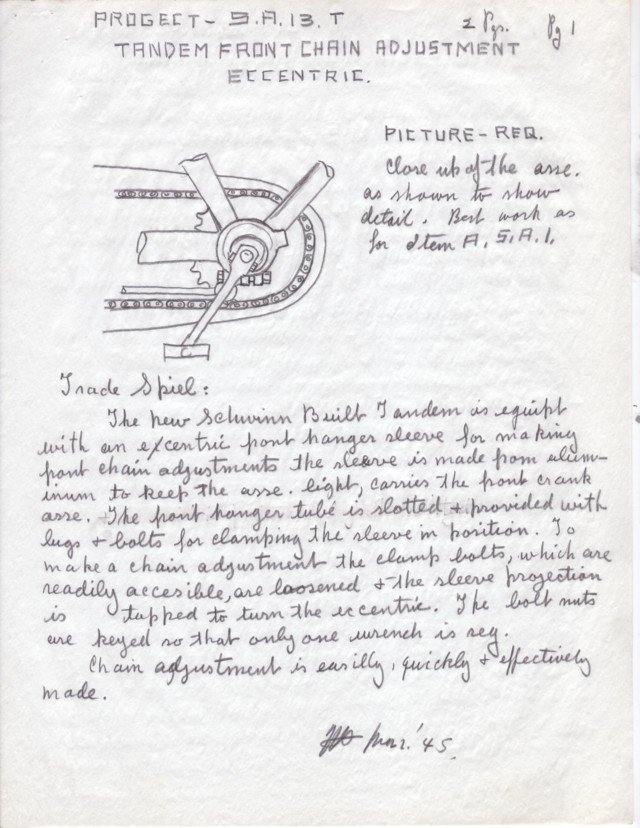 PROGECT - S.A.13.T
2 Pgs. Pg 1
TANDEM FRONT CHAIN ADJUSTMENT
ECCENTRIC.
PICTURE - REQ.
Close up of the asse.
as shown to show
detail. Best work as
for Item A. S.A.1.
Trade Spiel:
The new Schwinn Built Tandem is equipt
with an excentric front hanger sleeve for making
front chain adjustments the sleeve is made from alum-
inum to keep the asse. light, carries the front crank
asse. The front hanger tube is slotted & provided with
lugs & bolts for clamping the sleeve in position. To
make a chain adjustment the clamp bolts, which are
readily accesible, are loosened & the sleeve projection
is tapped to turn the eccentric. The bolt nuts
are keyed so that only one wrench is req.
Chain adjustment is easilly, quickly & effectively
made.
Mar. '45.